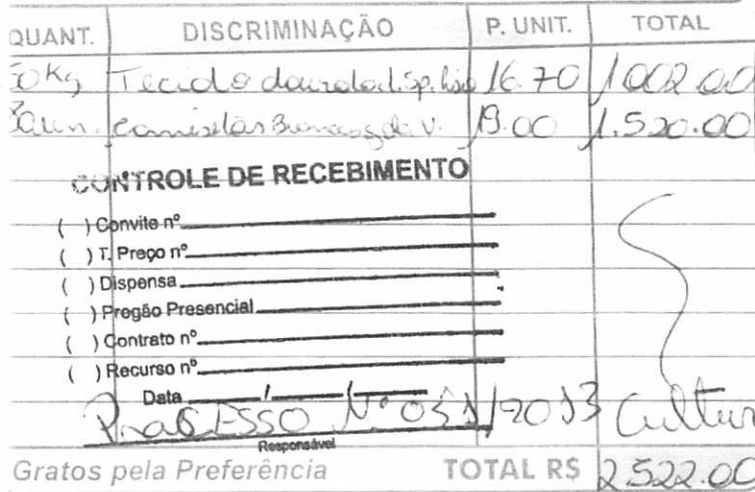 QUANT. DISCRIMINAÇÃO P. UNIT. TOTAL
Kg Tecido 16.70 1.002.00
camisetas gola V. 19.00 1.520.00
CONTROLE DE RECEBIMENTO
( ) Convite nº
( ) T. Preço nº
( ) Dispensa
( ) Pregão Presencial
( ) Contrato nº
( ) Recurso nº
Data / /
PROCESSO Nº 051/2013 Cultur
Responsável
Gratos pela Preferência TOTAL R$ 2.522.00